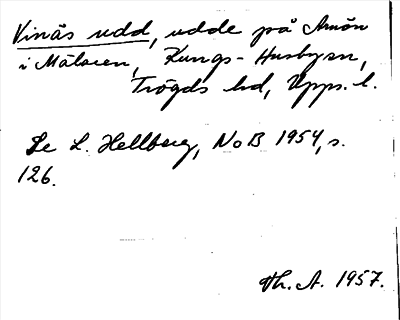 Vinäs udd, udde på Arnön
i Mälaren, Kungs-Husbysn,
Trögds hd, Upps. l.
Se L. Hellberg, NoB 1954, s.
126.
Th. A. 1957.